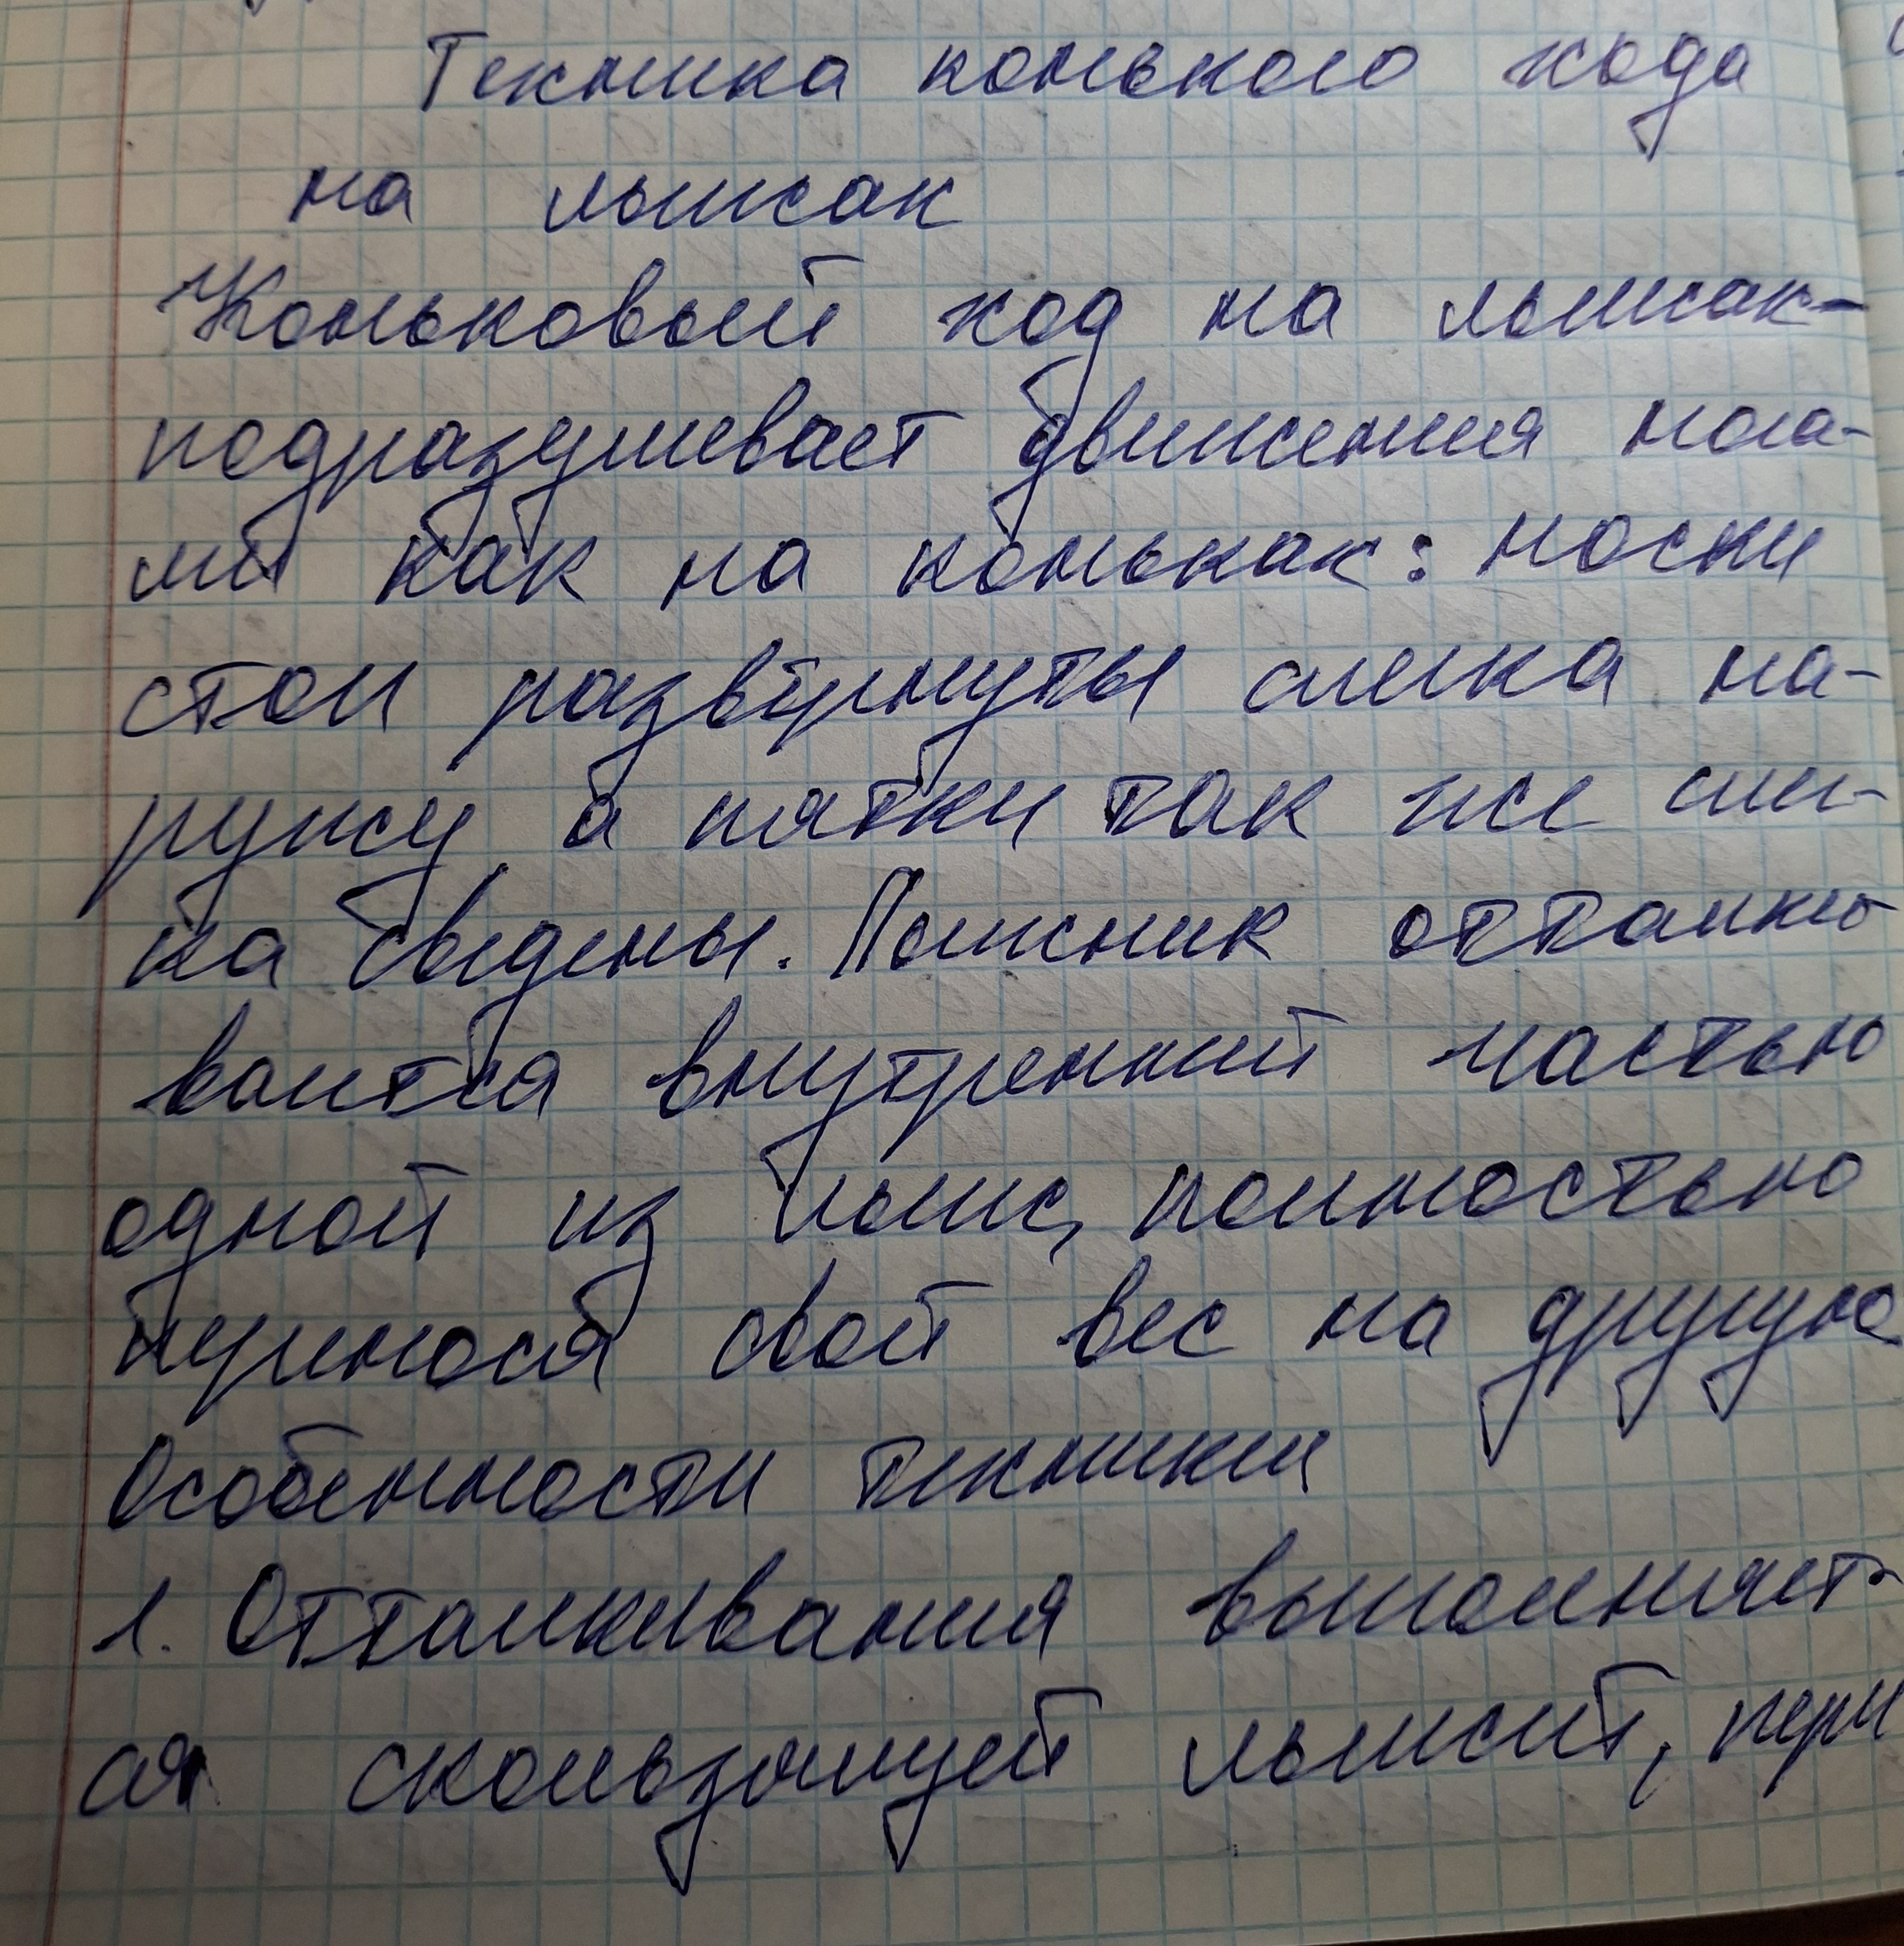 Техника конького хода
на лыжах
Коньковый ход на лыжах-
подразумевает движения нога-
ми как на коньках: носки
стоп развёрнуты слегка на-
ружу, а пятки так же слег-
ка сведены. Лыжник отталки-
вается внутренний частью
одной из лыж, полностью
перенося свой вес на другую
Особенности техники
1. Отталкивания выполняет-
ся скользящей лыжей, при